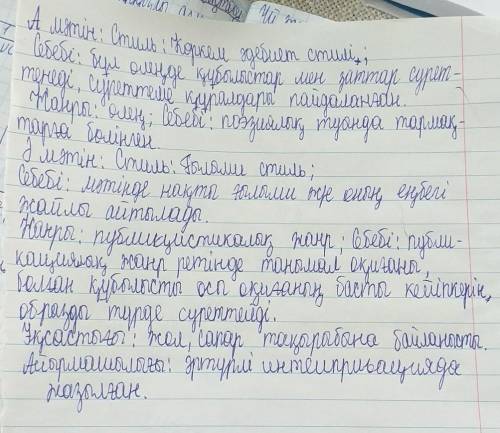 А мәтін: Стиль: Көркем әдебиет стилі;
Себебі: бұл өлеңде құбылыстар мен заттар сурет-
тенеді, суреттеме құралдары пайдаланған.
Жанры: өлең; Себебі: поэзиялық туанда тармақ-
тарға бөлінген.
Ә мәтін: Стиль: Ғылыми стиль;
Себебі: мәтінде нақты ғылыми және оның еңбегі
жайлы айтылады.
Жанры: публицистикалық жанр; Себебі: публи-
кациялық жанр ретінде танымал оқиғаны,
болған құбылысты осы оқиғаның басты кейіпкерін,
образды түрде суреттейді.
Ұқсастығы: жол, сапар тақырыбына байланысты.
Айырмашылығы: әртүрлі интеипривацияда
жазылған.